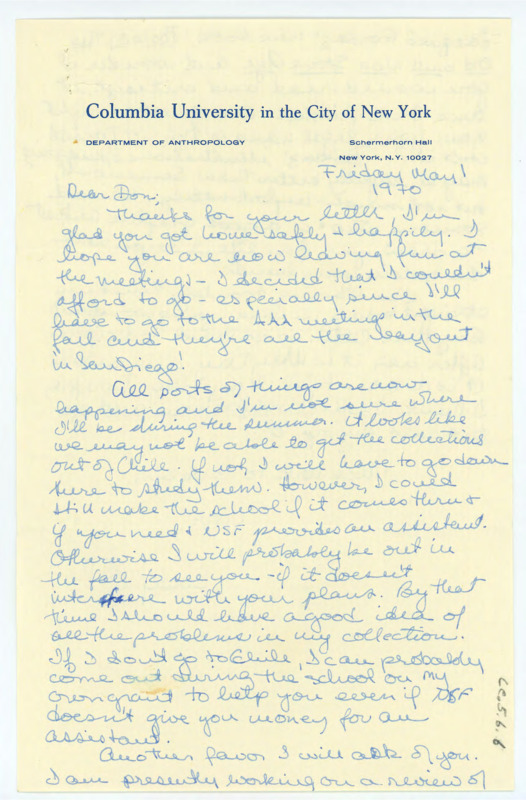 Columbia University in the City of New York
DEPARTMENT OF ANTHROPOLOGY
Schermerhorn Hall
New York, N.Y. 10027
Friday May 1
1970
Dear Don;
Thanks for your letter, I'm
glad you got home safely & happily. I
hope you are now having fun at
the meetings - I decided that I couldn't
afford to go - especially since I'll
have to go to the AAA meetings in the
fall and they're all the way out
in San Diego!
All sorts of things are now
happening and I'm not sure where
I'll be during the summer. It looks like
we may not be able to get the collections
out of Chile. If not, I will have to go down
there to study them. However, I could
still make the school if it comes thru &
if you need & NSF provides an assistant.
Otherwise I will probably be out in
the fall to see you - if it doesn't
interfere with your plans. By that
time I should have a good idea of
all the problems in my collection.
If I don't go to Chile, I can probably
come out during the school on my
own grant to help you even if NSF
doesn't give you money for an
assistant.
Another favor I will ask of you.
I am presently working on a review of